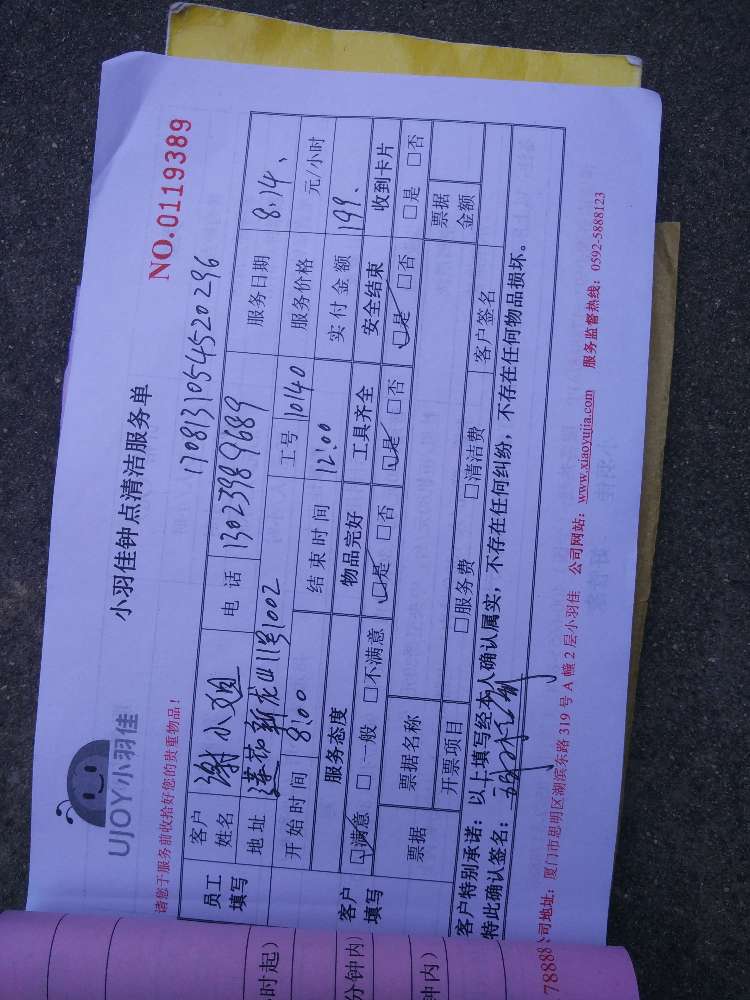 UJOY小羽佳
小羽佳钟点清洁服务单
NO.0119389
请您于服务前收拾好您的贵重物品！
1708131054520296
员工填写 客户姓名 谢小姐 电话 13023989689 服务日期 8.14、
地址 莲花新龙山11号1002 工号 10140 服务价格 元/小时
开始时间 8:00 结束时间 12:00 实付金额 199.
客户填写 服务态度 物品完好 工具齐全 安全结束 收到卡片
☑满意 □一般 □不满意 ☑是 □否 ☑是 □否 ☑是 □否 □是 □否
票据 票据名称 票据金额
开票项目 □服务费 □清洁费 客户签名
客户特别承诺：以上填写经本人确认属实，不存在任何纠纷，不存在任何物品损坏。
特此确认签名：
78888 公司地址：厦门市思明区湖滨东路319号A幢2层小羽佳 公司网站：www.xiaoyujia.com 服务监督热线：0592-5888123
时起）
分钟内）
钟内）